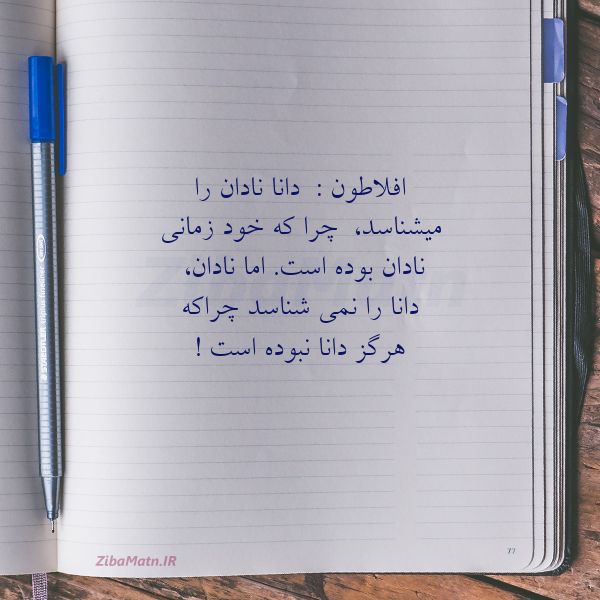 افلاطون : دانا نادان را
میشناسد، چرا که خود زمانی
نادان بوده است. اما نادان،
دانا را نمی شناسد چراکه
هرگز دانا نبوده است !
ZibaMatn.IR
77